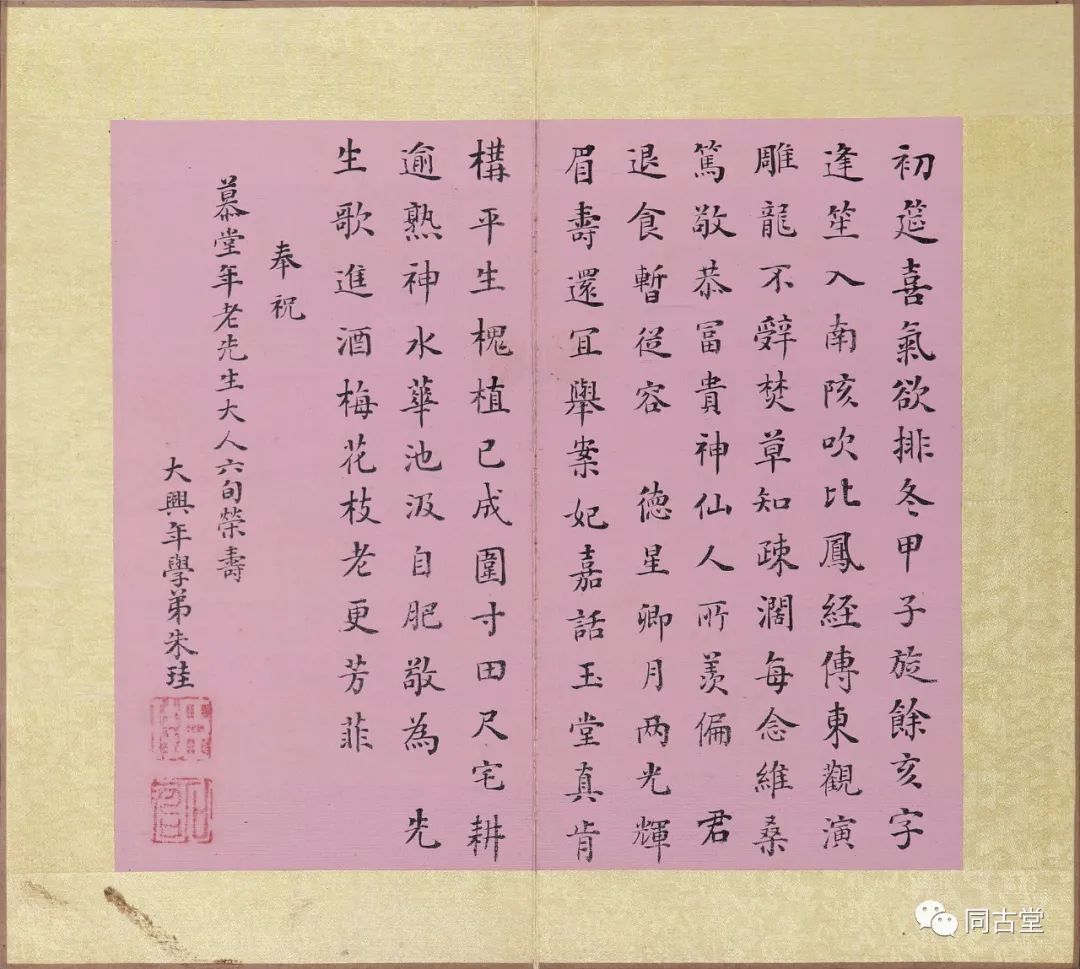 初筵喜氣欲排冬甲子旋餘亥字
逢笙入南陔吹比鳳經傳東觀演
雕龍不辤焚草知疎濶每念維桑
篤敬恭冨貴神仙人所羨偏 君
退食暫從容 德星卿月两光輝
眉壽還宜舉案妃嘉話玉堂真肯
構平生槐植已成圍寸田尺宅耕
逾熟神水華池汲自肥敬為 先
生歌進酒梅花枝老更芳菲
奉祝
慕堂年老先生大人六旬榮壽
大興年學弟朱珪
同古堂